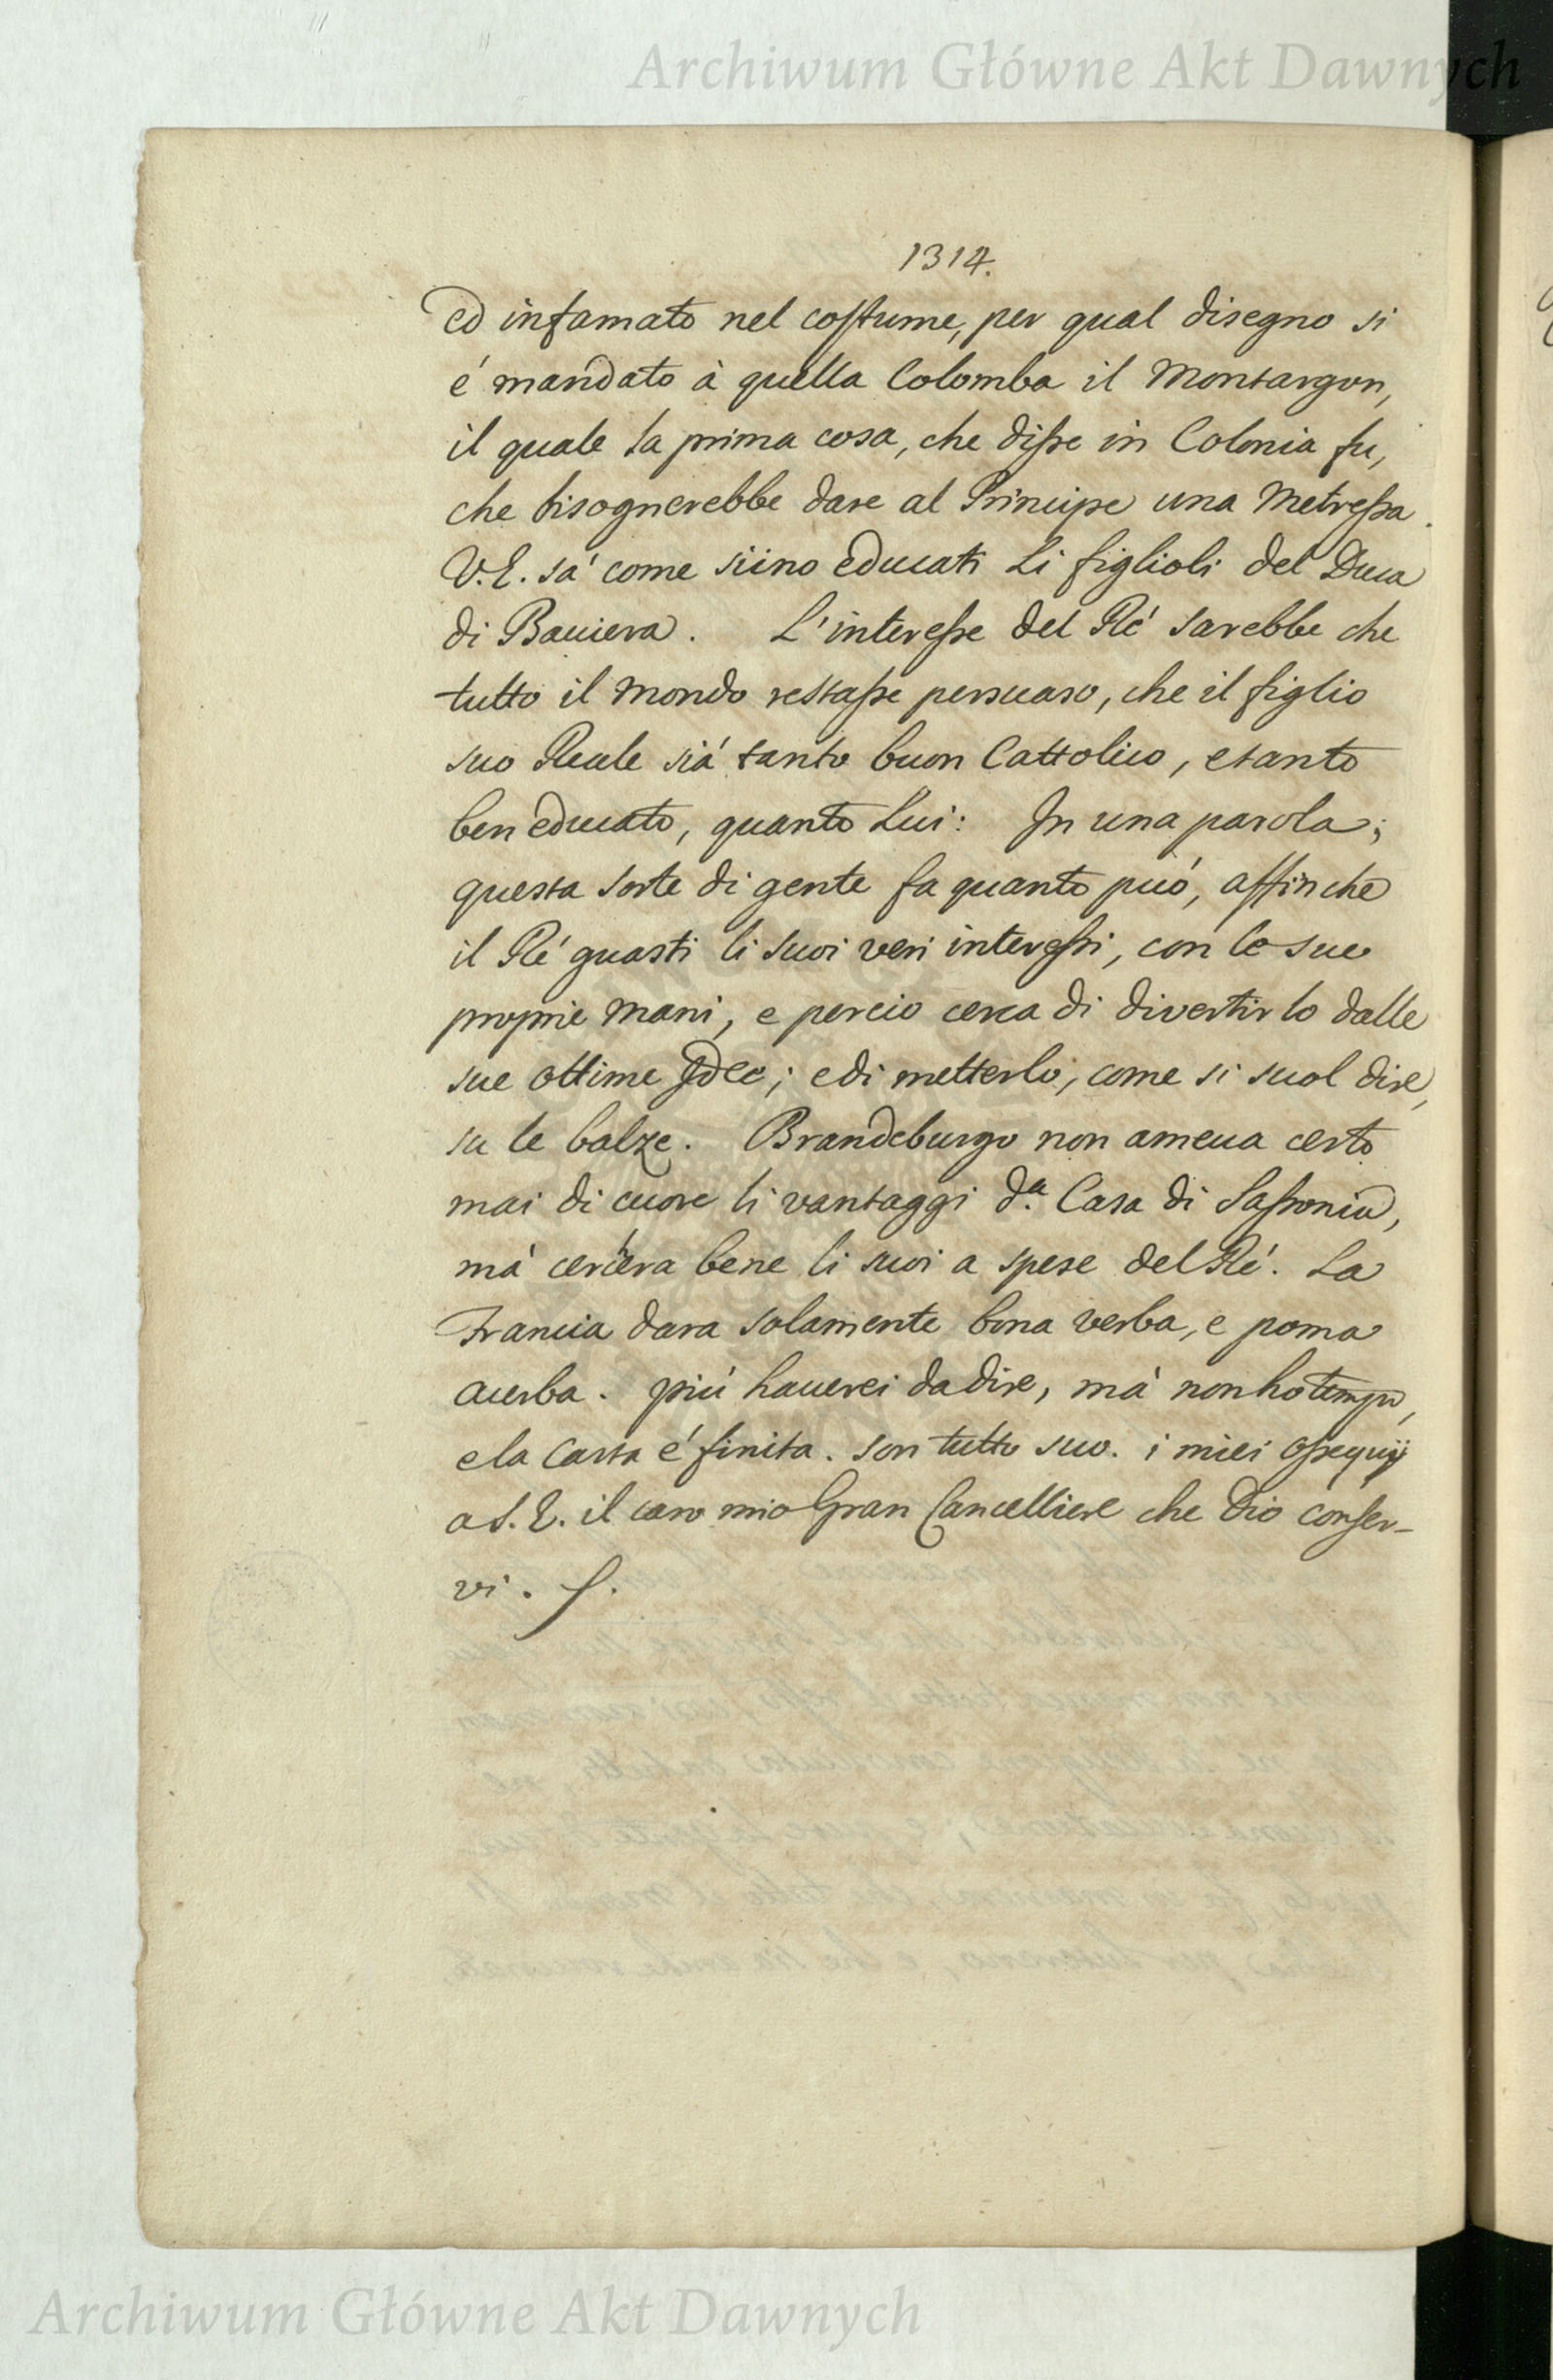 Archiwum Główne Akt Dawnych
1314.
ed infamato nel costume, per qual disegno si
é mandato à quella Colomba il Montargon,
il quale la prima cosa, che disse in Colonia fu,
che bisognerebbe dare al Principe una Metressa.
V.E. sá come siino educati li figlioli del Duca
di Bauiera. L'interesse del Ré sarebbe che
tutto il Mondo restasse persuaso, che il figlio
suo Reale siá tanto buon Cattolico, e tanto
ben educato, quanto Lui: In una parola;
questa sorte di gente fa quanto può, affinche
il Ré guasti li suoi veri interessi, con le sue
proprie Mani, e percio cerca di divertirlo dalle
sue ottime Idee; e di metterlo, come si suol dire,
su le balze. Brandeburgo non ameua certo
mai di cuore li vantaggi d.a Casa di Sassonia,
má cerchera bene li suoi a spese del Ré. La
Francia dara solamente bona verba, e poma
acerba. piú hauerei da dire, má non ho tempo,
e la Carta é finita. son tutto suo. i miei ossequij
a S.E. il caro mio Gran Cancelliere che Dio conser-
vi. S.
Archiwum Główne Akt Dawnych